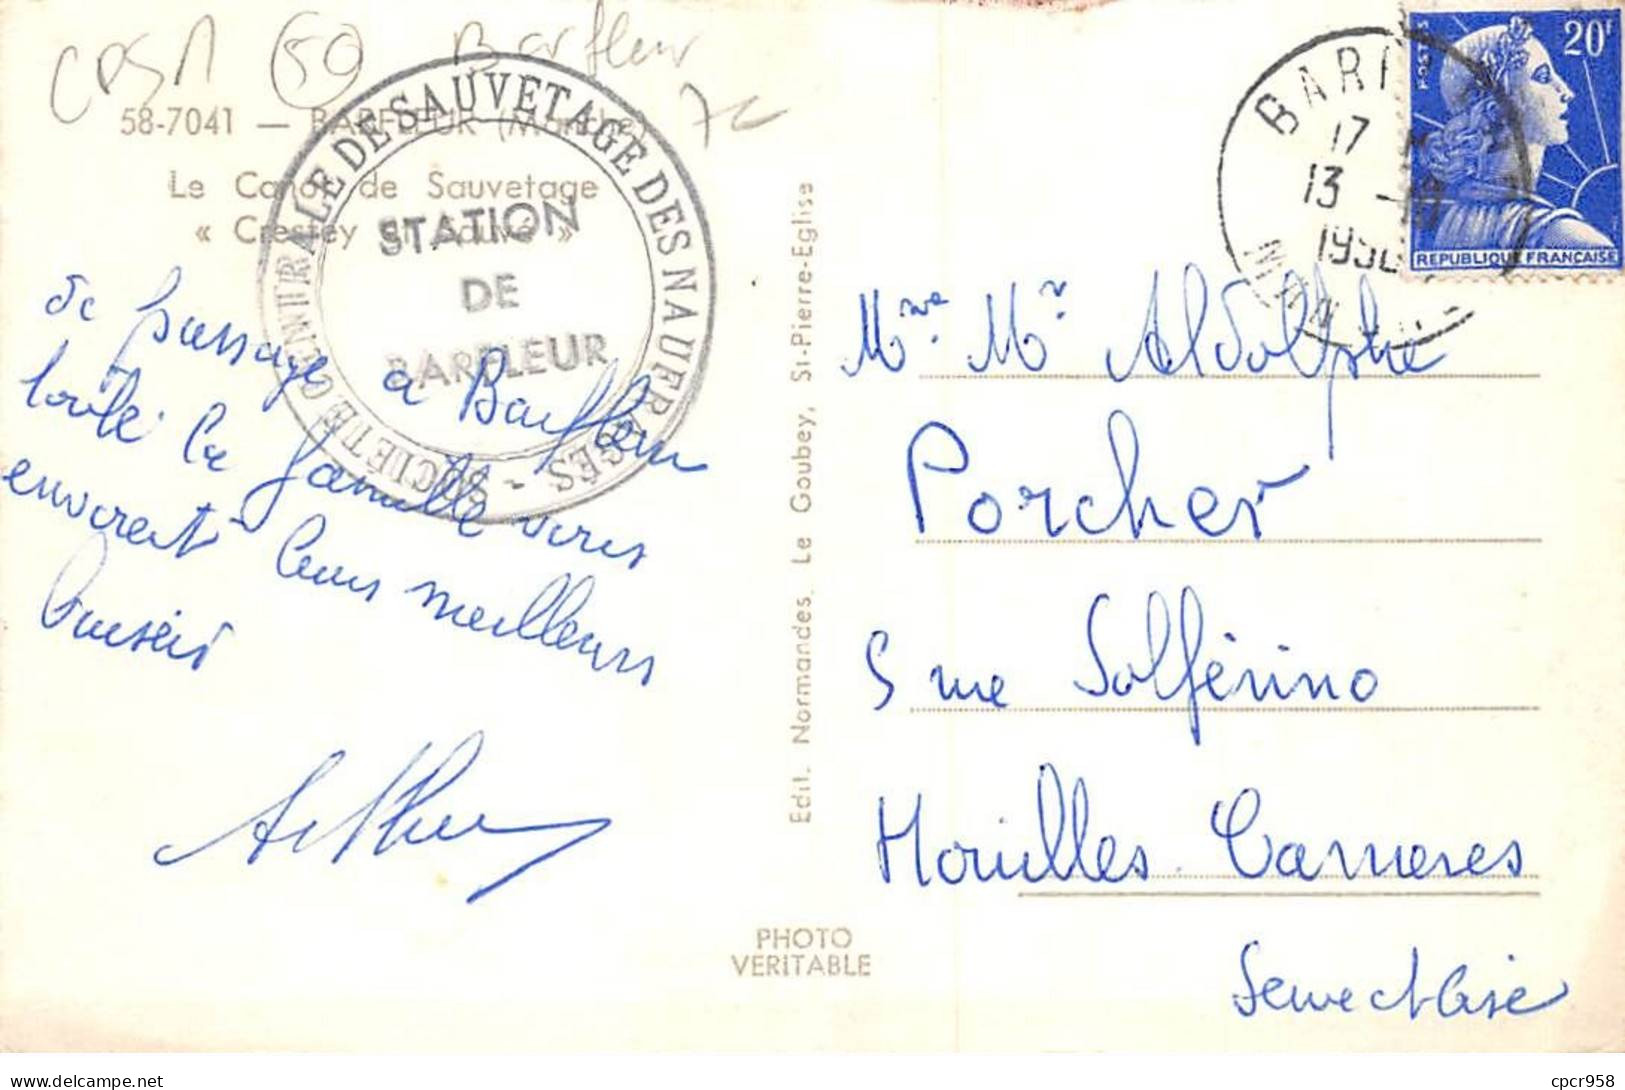 CPSM 50 Barfleur
58-7041 — BARFLEUR (Manche)
Le Canot de Sauvetage
« Crestey et Sauvé »
SOCIÉTÉ CENTRALE DE SAUVETAGE DES NAUFRAGÉS -
STATION
DE
BARFLEUR
de passage à Barfleur
toute la famille vous
envoient leurs meilleurs
Baisers
Arthur
Edit. Normandes. Le Goubey, St-Pierre-Eglise
PHOTO
VERITABLE
BARFLEUR
17 H
13 -10
MANCHE
POSTES
20F
REPUBLIQUE FRANÇAISE
Mme Mr Aldolphe
Porcher
5 rue Solférino
Houilles Carrieres
Seine et Oise
cpcr958